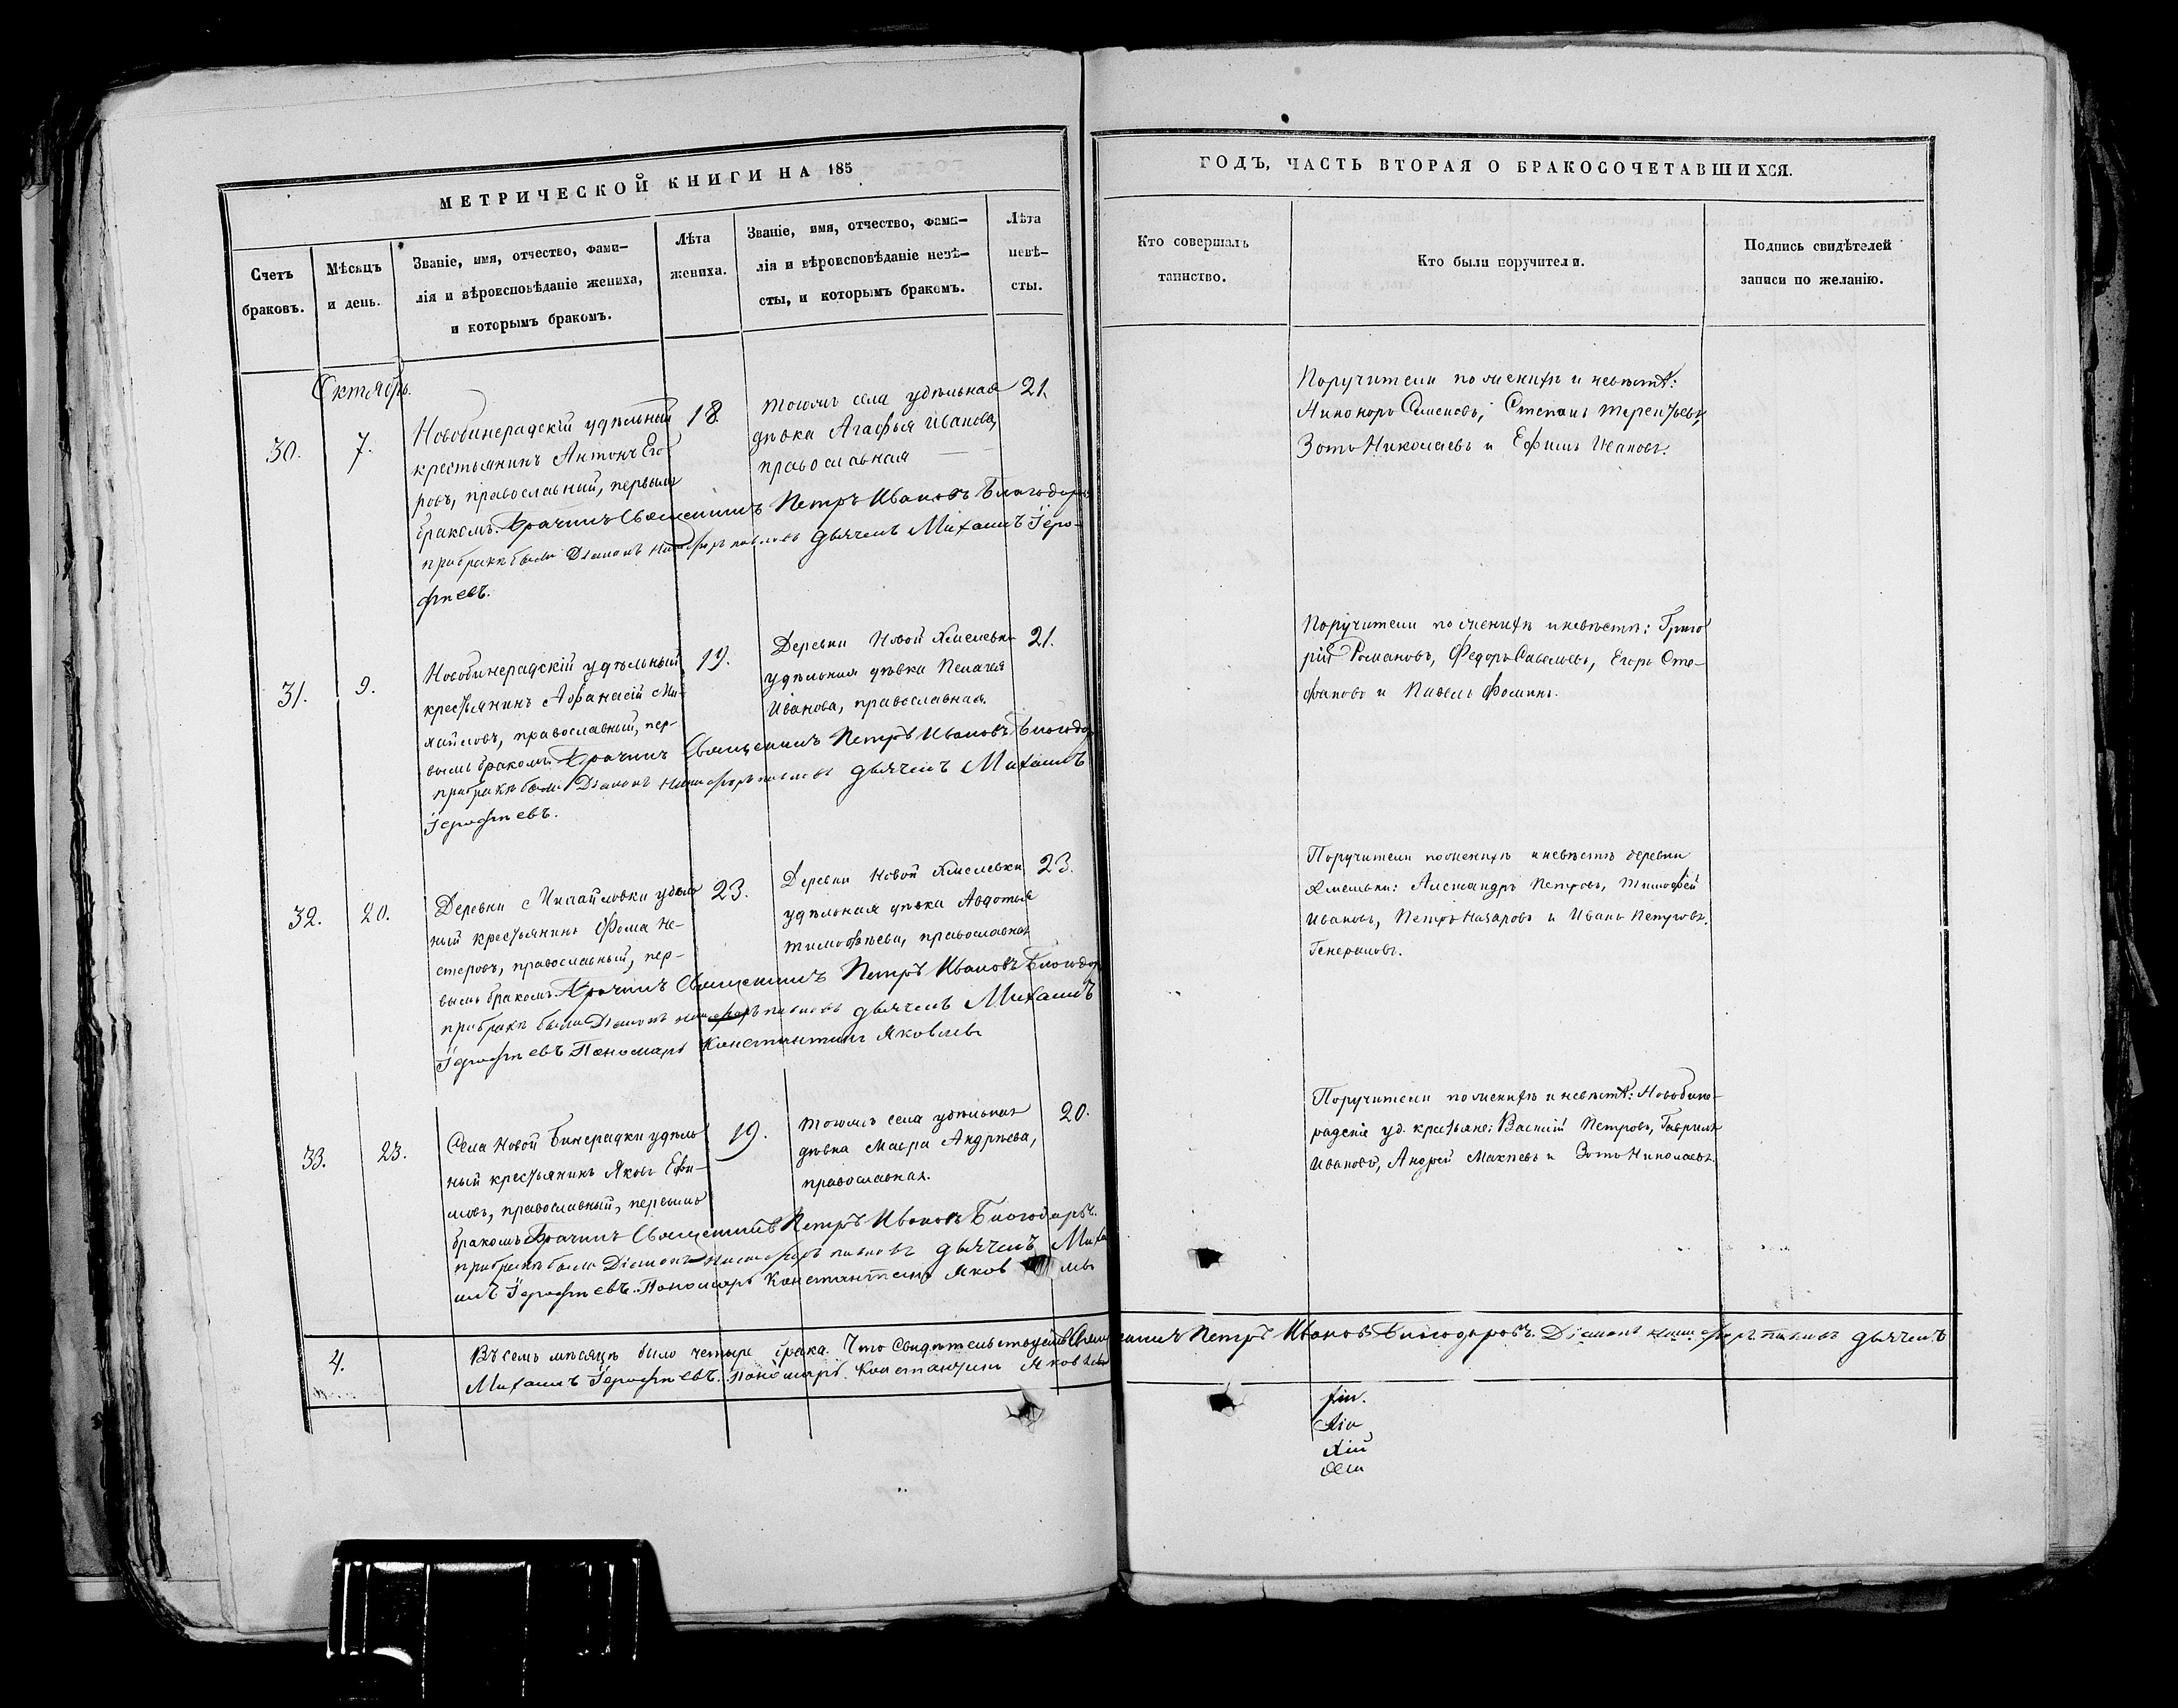 МЕТРИЧЕСКОЙ КНИГИ НА 185
Счетъ браковъ.
Мѣсяцъ и день.
Званіе, имя, отчество, фами-
лія и вѣроисповѣданіе жениха,
и которымъ бракомъ.
Лѣта жениха.
Званіе, имя, отчество, фами-
лія и вѣроисповѣданіе невѣ-
сты, и которымъ бракомъ.
Лѣта невѣ-
сты.
Октябрь.
30. 7.
Новобинерадскій удѣльный
крестьянинъ Антонъ Его
ровъ, православный, первымъ
бракомъ.
18.
тогожъ села удѣльная
дѣвка Агафья Иванова,
православная
21.
Бракъ Священникъ Петръ Ивановъ Благодаровъ
при бракѣ были Діаконъ Никифоръ Павловъ дьячекъ Михаилъ Іеро-
фѣевъ.
31. 9.
Новобинерадскій удѣльный
крестьянинъ Афанасій Ми-
хайловъ, православный, пер-
вымъ бракомъ
19.
Деревни Новой Хмелевки
удѣльная дѣвка Пелагея
Иванова, православная.
21.
Священникъ Петръ Ивановъ
при бракѣ были Діаконъ Никифоръ Павловъ дьячекъ Михаилъ
Іерофѣевъ.
32. 20.
Деревни Михайловки удѣль
ный крестьянинъ Фома Не-
стеровъ, православный, пер-
вымъ бракомъ.
23.
Деревни Новой Хмелевки
удѣльная дѣвка Авдотья
Тимофѣева, православная
23.
Священникъ Петръ Ивановъ
при бракѣ были Діаконъ Никифоръ Павловъ дьячекъ Михаилъ
Іерофѣевъ Пономарь Константинъ Яковлевъ
33. 23.
Села Новой Бинерадки удѣль
ный крестьянинъ Яковъ Ефи-
мовъ, православный, первымъ
бракомъ
19.
тогожъ села удѣльная
дѣвка Мавра Андрѣева,
православная.
20.
Священникъ Петръ Ивановъ Благодаровъ.
при бракѣ были Діаконъ Никифоръ Павловъ дьячекъ Миха
илъ Іерофѣевъ. Пономарь Константинъ Яков левъ
4. Въ семъ мѣсяцѣ было четыре брака. Что свидѣтельствуемъ Священникъ Петръ Ивановъ Благодаровъ. Діаконъ Никифоръ Павловъ дьячекъ
Михаилъ Іерофѣевъ. Пономарь Константинъ Яковлевъ
ГОДЪ, ЧАСТЬ ВТОРАЯ О БРАКОСОЧЕТАВШИХСЯ.
Кто совершалъ
таинство.
Кто были поручители.
Подпись свидѣтелей
записи по желанію.
Поручители по женихѣ и невѣстѣ:
Никоноръ Семеновъ, Степанъ Терентьевъ,
Зотъ Николаевъ и Ефимъ Ивановъ.
Поручители по женихѣ и невѣстѣ: Григо
рій Романовъ, Федоръ Савельевъ, Егоръ Сте-
фановъ и Павелъ Фоминъ.
Поручители по женихѣ и невѣстѣ деревни
Хмелевки: Александръ Петровъ, Тимофей
Ивановъ, Петръ Назаровъ и Иванъ Петровъ.
Генераловъ.
Поручители по женихѣ и невѣстѣ: Новобине-
радскіе уд. крестьяне: Василій Петровъ, Гаврилъ
Ивановъ, Андрей Макѣевъ и Зотъ Николаевъ.